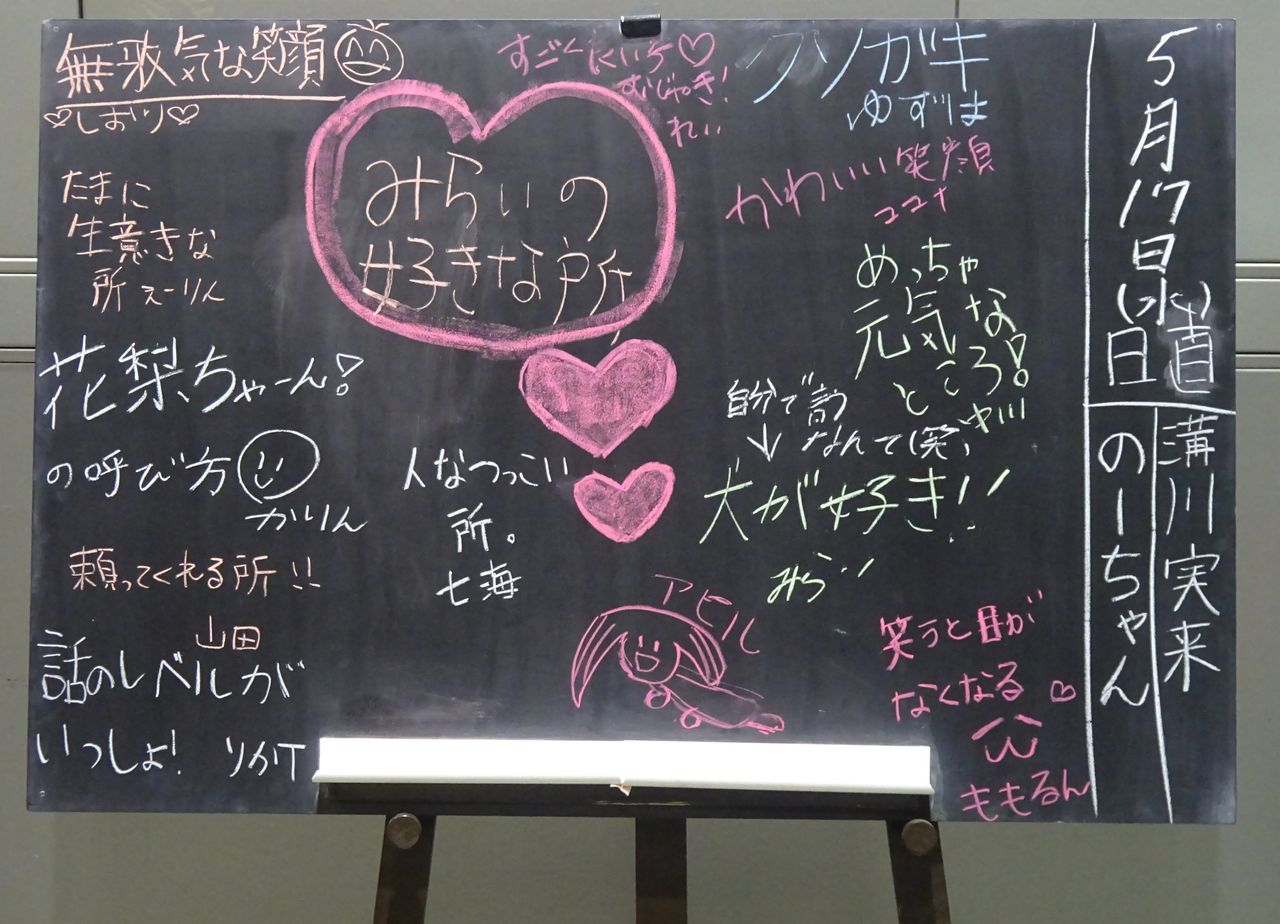 5月17日(水)
日直
溝川実来
のーちゃん
みらいの
好きな所
無邪気な笑顔
♡しおり♡
たまに
生意きな
所 えーりん
花梨ちゃーん!
の呼び方
かりん
頼ってくれる所!!
山田
話のレベルが
いっしょ! りかT
人なつっこい
所。
七海
むじゃき!
れい
クソガキ
ゆずは
かわいい笑顔
ココナ
めっちゃ
元気な
ところ!
自分で言う
なんて(笑)
↓
犬が好き!!
アヒル
笑うと目が
なくなる♡
ももるん